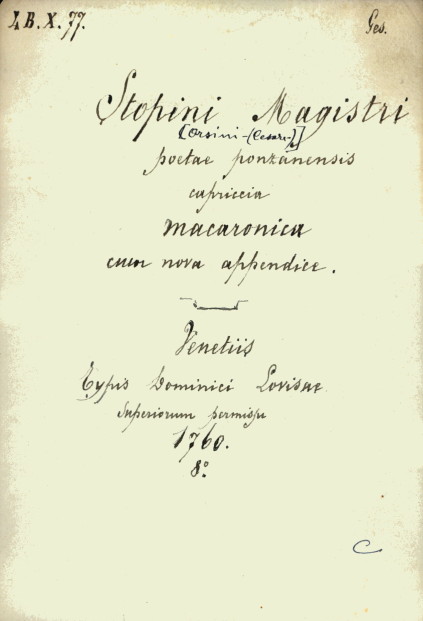 4B.X.77.
Ges.
Stopini Magistri
[Orsini-(Cesare)]
poetae ponzanensis
capriccia
macaronica
cum nova appendice.
Venetiis
Typis Dominici Lovisae
Superiorum permissu
1760.
8º
C